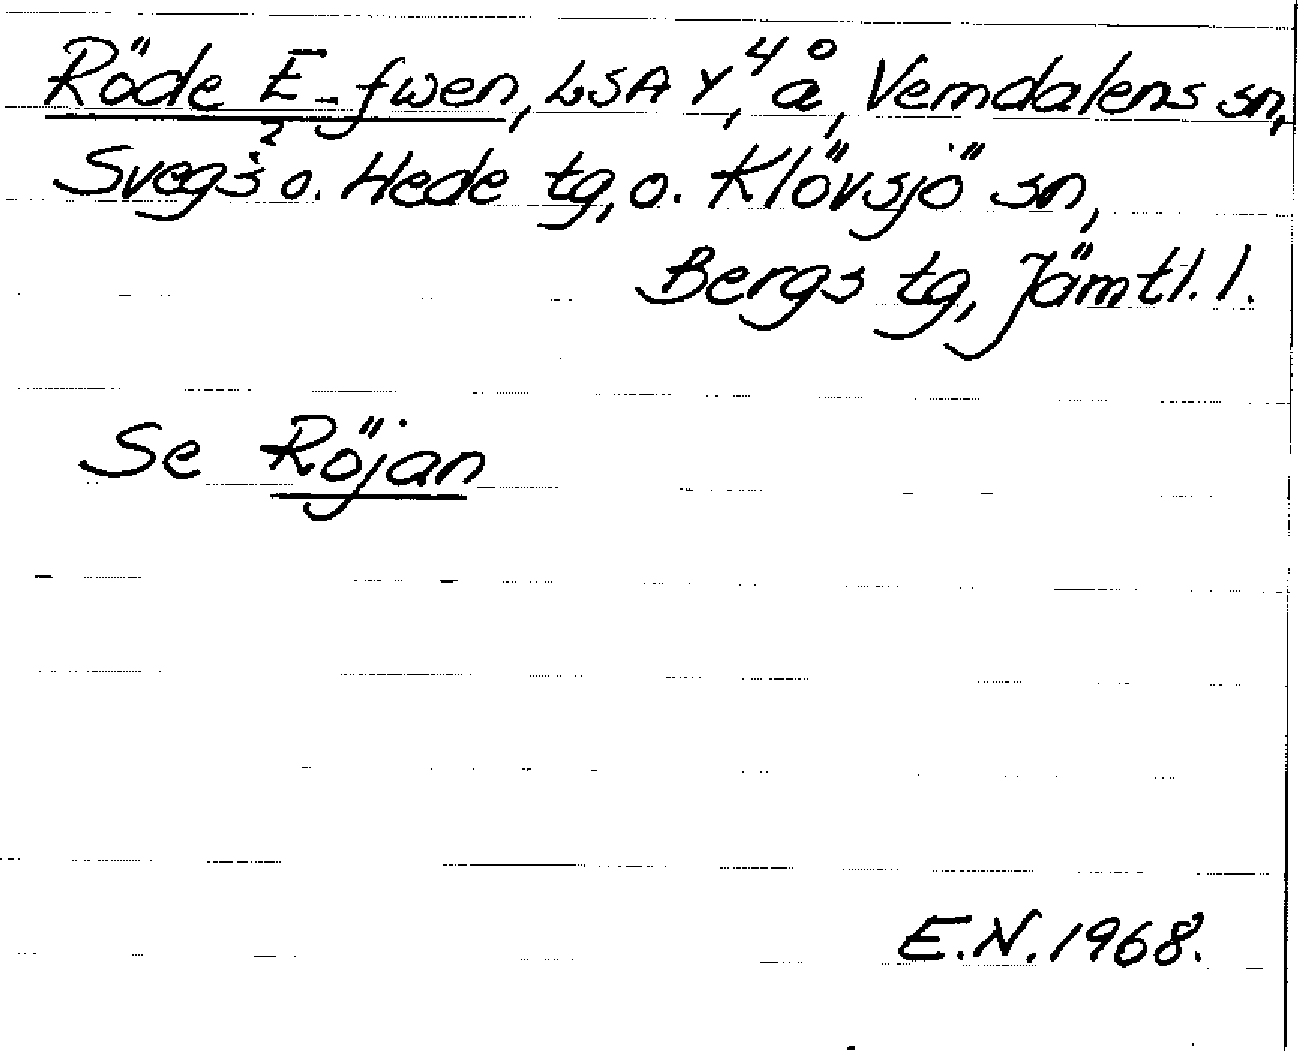 Röde E-fwen, LSA Y⁴, å, Vemdalens sn,
Svegs² o. Hede tg, o. Klövsjö sn,
Bergs tg, Jämtl. l.
Se Röjan
E.N. 1968.